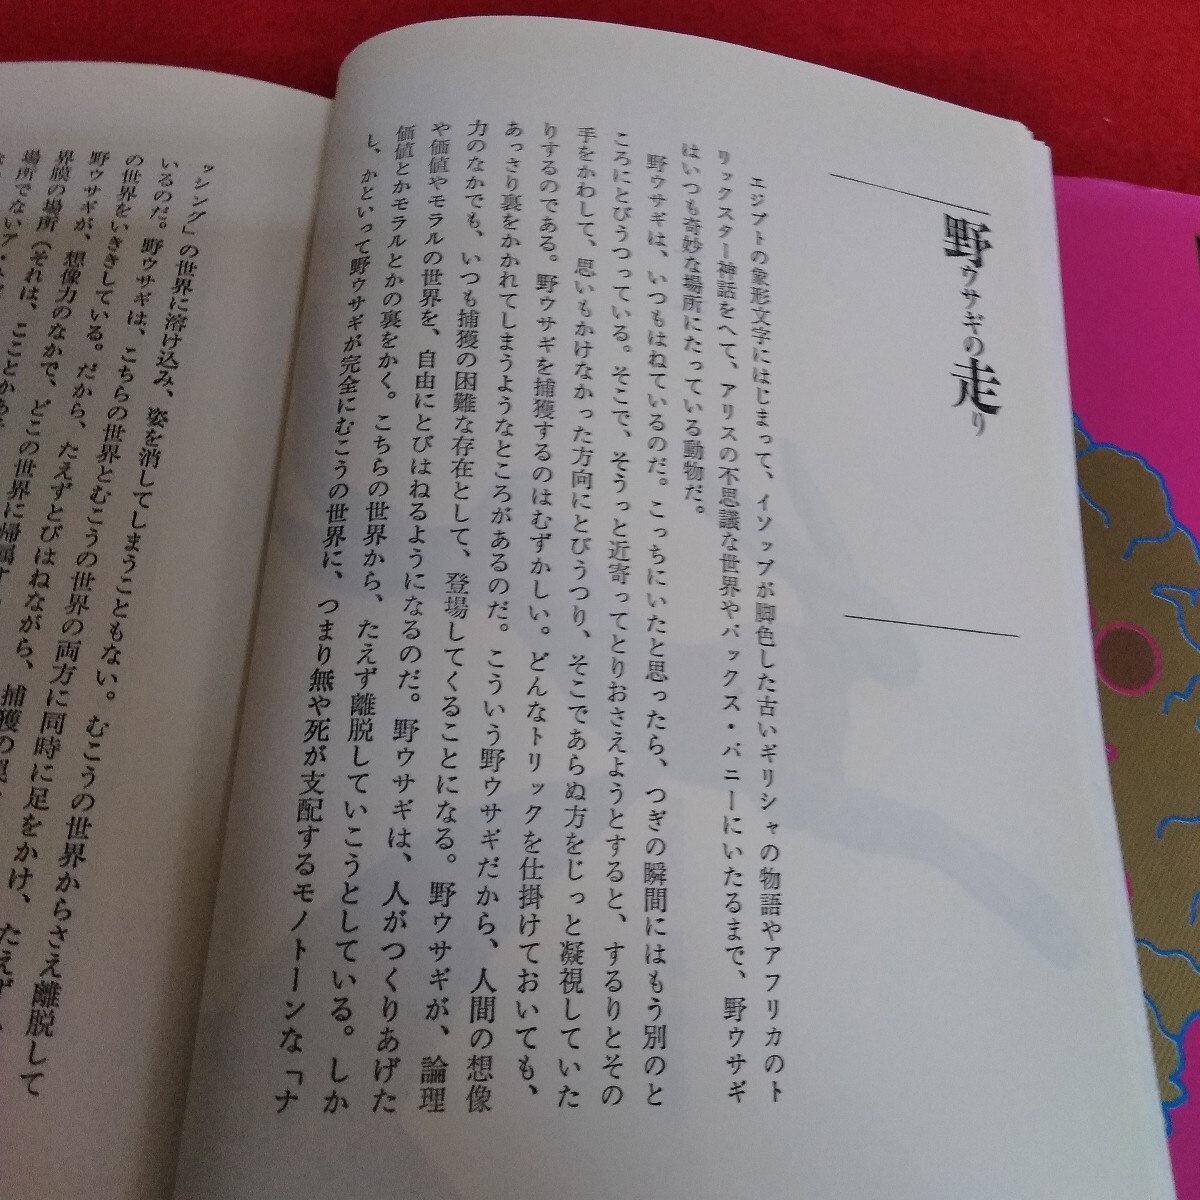 野ウサギの走り
エジプトの象形文字にはじまって、イソップが脚色した古いギリシャの物語やアフリカのト
リックスター神話をへて、アリスの不思議な世界やバックス・バニーにいたるまで、野ウサギ
はいつも奇妙な場所にたっている動物だ。
野ウサギは、いつもはねているのだ。こっちにいたと思ったら、つぎの瞬間にはもう別のと
ころにとびうつっている。そこで、そうっと近寄ってとりおさえようとすると、するりとその
手をかわして、思いもかけなかった方向にとびうつり、そこであらぬ方をじっと凝視していた
りするのである。野ウサギを捕獲するのはむずかしい。どんなトリックを仕掛けておいても、
あっさり裏をかかれてしまうようなところがあるのだ。こういう野ウサギだから、人間の想像
力のなかでも、いつも捕獲の困難な存在として、登場してくることになる。野ウサギが、論理
や価値やモラルの世界を、自由にとびはねるようになるのだ。野ウサギは、人がつくりあげた
価値とかモラルとかの裏をかく。こちらの世界から、たえず離脱していこうとしている。しか
し、かといって野ウサギが完全にむこうの世界に、つまり無や死が支配するモノトーンな「ナ
ッシング」の世界に溶け込み、姿を消してしまうこともない。むこうの世界からさえ離脱して
いるのだ。野ウサギは、こちらの世界とむこうの世界の両方に同時に足をかけ、たえず
の世界をいききしている。だから、たえずとびはねながら、捕獲の
野ウサギが、想像力のなかで、どこの世界に帰属す
界膜の場所(それは、こことか
場所でない